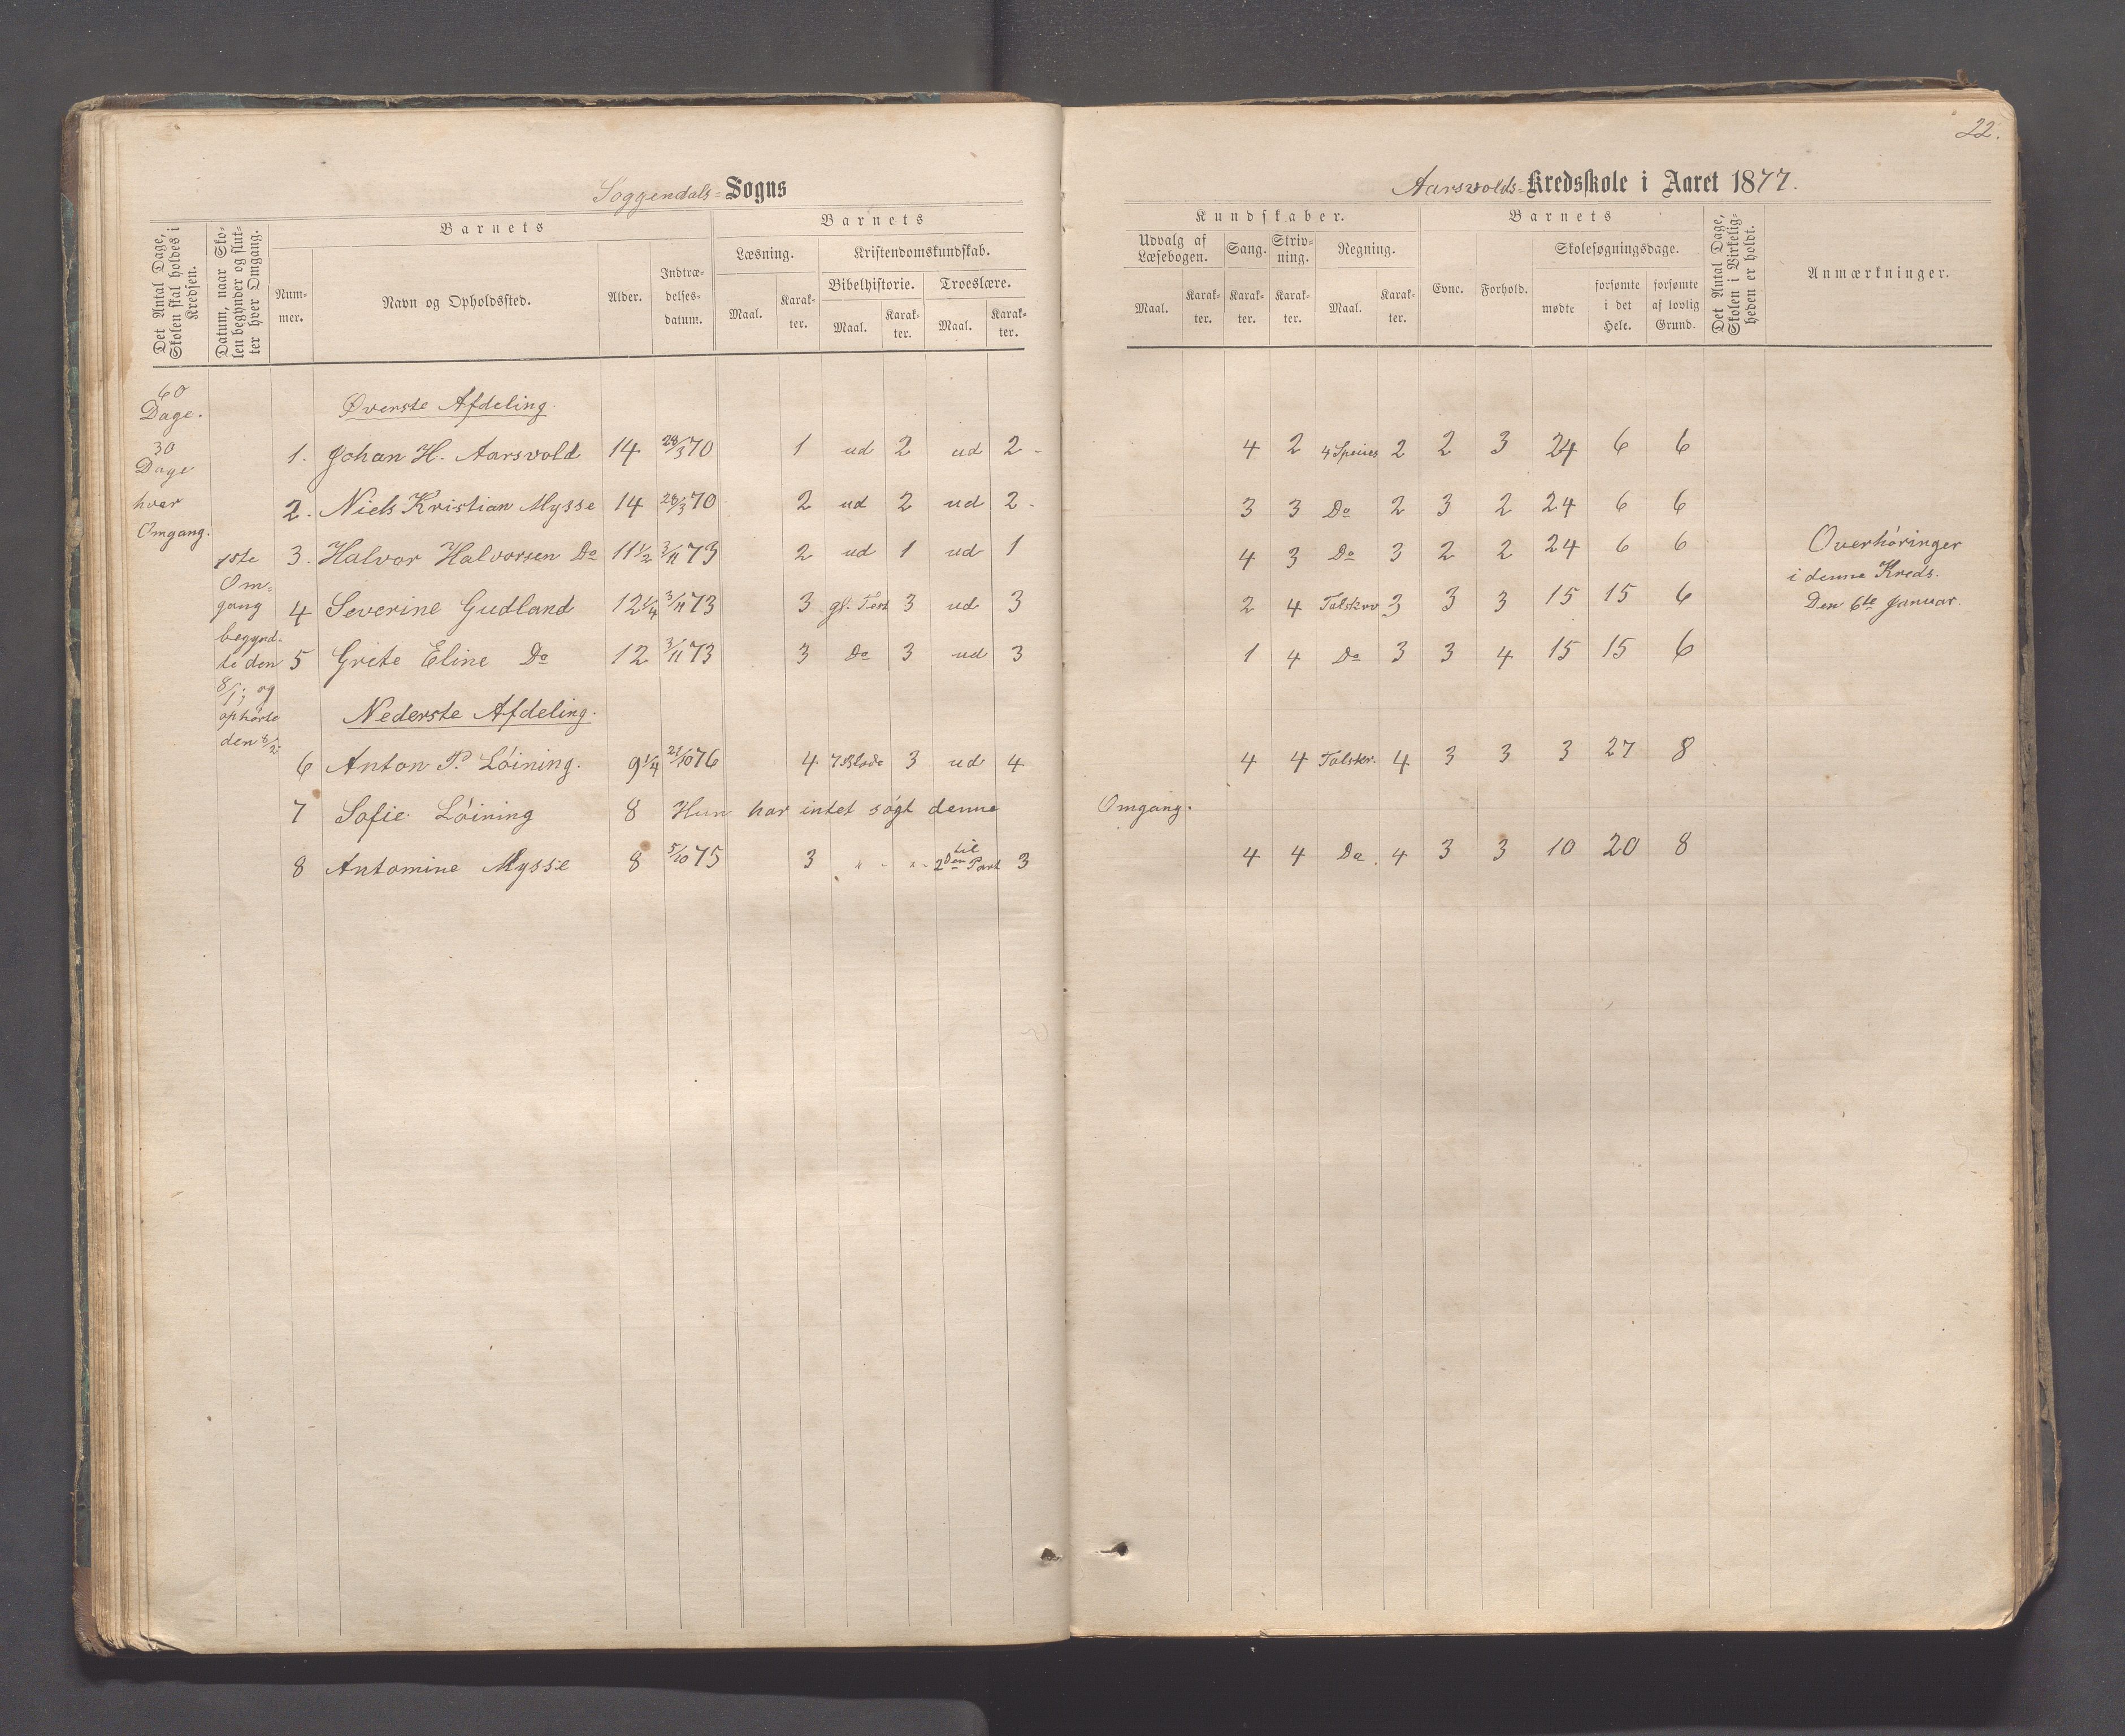 22.
Soggendals- Sogns
Aarsvolds- Kredsskole i Aaret 1877.
Det Antal Dage, Skolen skal holdes i Kredsen.
Datum, naar Skolen begynder og slutter hver Omgang.
Barnets
Nummer.
Navn og Opholdssted.
Alder.
Indtrædelsesdatum.
Barnets
Læsning.
Maal.
Karakter.
Kristendomskundskab.
Bibelhistorie.
Maal.
Karakter.
Troeslære.
Maal.
Karakter.
Kundskaber.
Udvalg af Læsebogen.
Maal.
Karakter.
Sang.
Karakter.
Skrivning.
Karakter.
Regning.
Maal.
Karakter.
Barnets
Evne.
Forhold.
Skolesøgningsdage.
mødte
forsømte i det Hele.
forsømte af lovlig Grund.
Det Antal Dage, Skolen i Virkeligheden er holdt.
Anmærkninger.
60
Dage.
30
Dage
hver
Omgang.
1ste
Om-
gang
begynd-
te den
8/1; og
ophørte
den 8/2.
Øverste Afdeling.
1. Johan H. Aarsvold 14 28/3 70 1 ud 2 ud 2 - 4 2 4 Species 2 2 3 24 6 6
2. Niels Kristian Mysse 14 28/3 70 2 ud 2 ud 2 - 3 3 Do 2 3 2 24 6 6
3. Halvor Halvorsen Do 11 1/2 3/11 73 2 ud 1 ud 1 4 3 Do 3 2 2 24 6 6
4 Severine Gudland 12 1/4 3/11 73 3 gl. Test 3 ud 3 2 4 Talskrv 3 3 3 15 15 6
5 Grete Eline Do 12 3/11 73 3 Do 3 ud 3 1 4 Do 3 3 4 15 15 6
Nederste Afdeling.
6 Anton P. Löining. 9 1/4 21/10 76 4 7 Blade 3 ud 4 4 4 Talskr. 4 3 3 3 27 8
7 Sofie Löining 8 Hun har intet søgt denne Omgang.
8 Antomine Mysse 8 5/10 75 3 " - " - til 2den Part 3 4 4 Do. 4 3 3 10 20 8
Overhøringer
i denne Kreds.
Den 6te Januar.